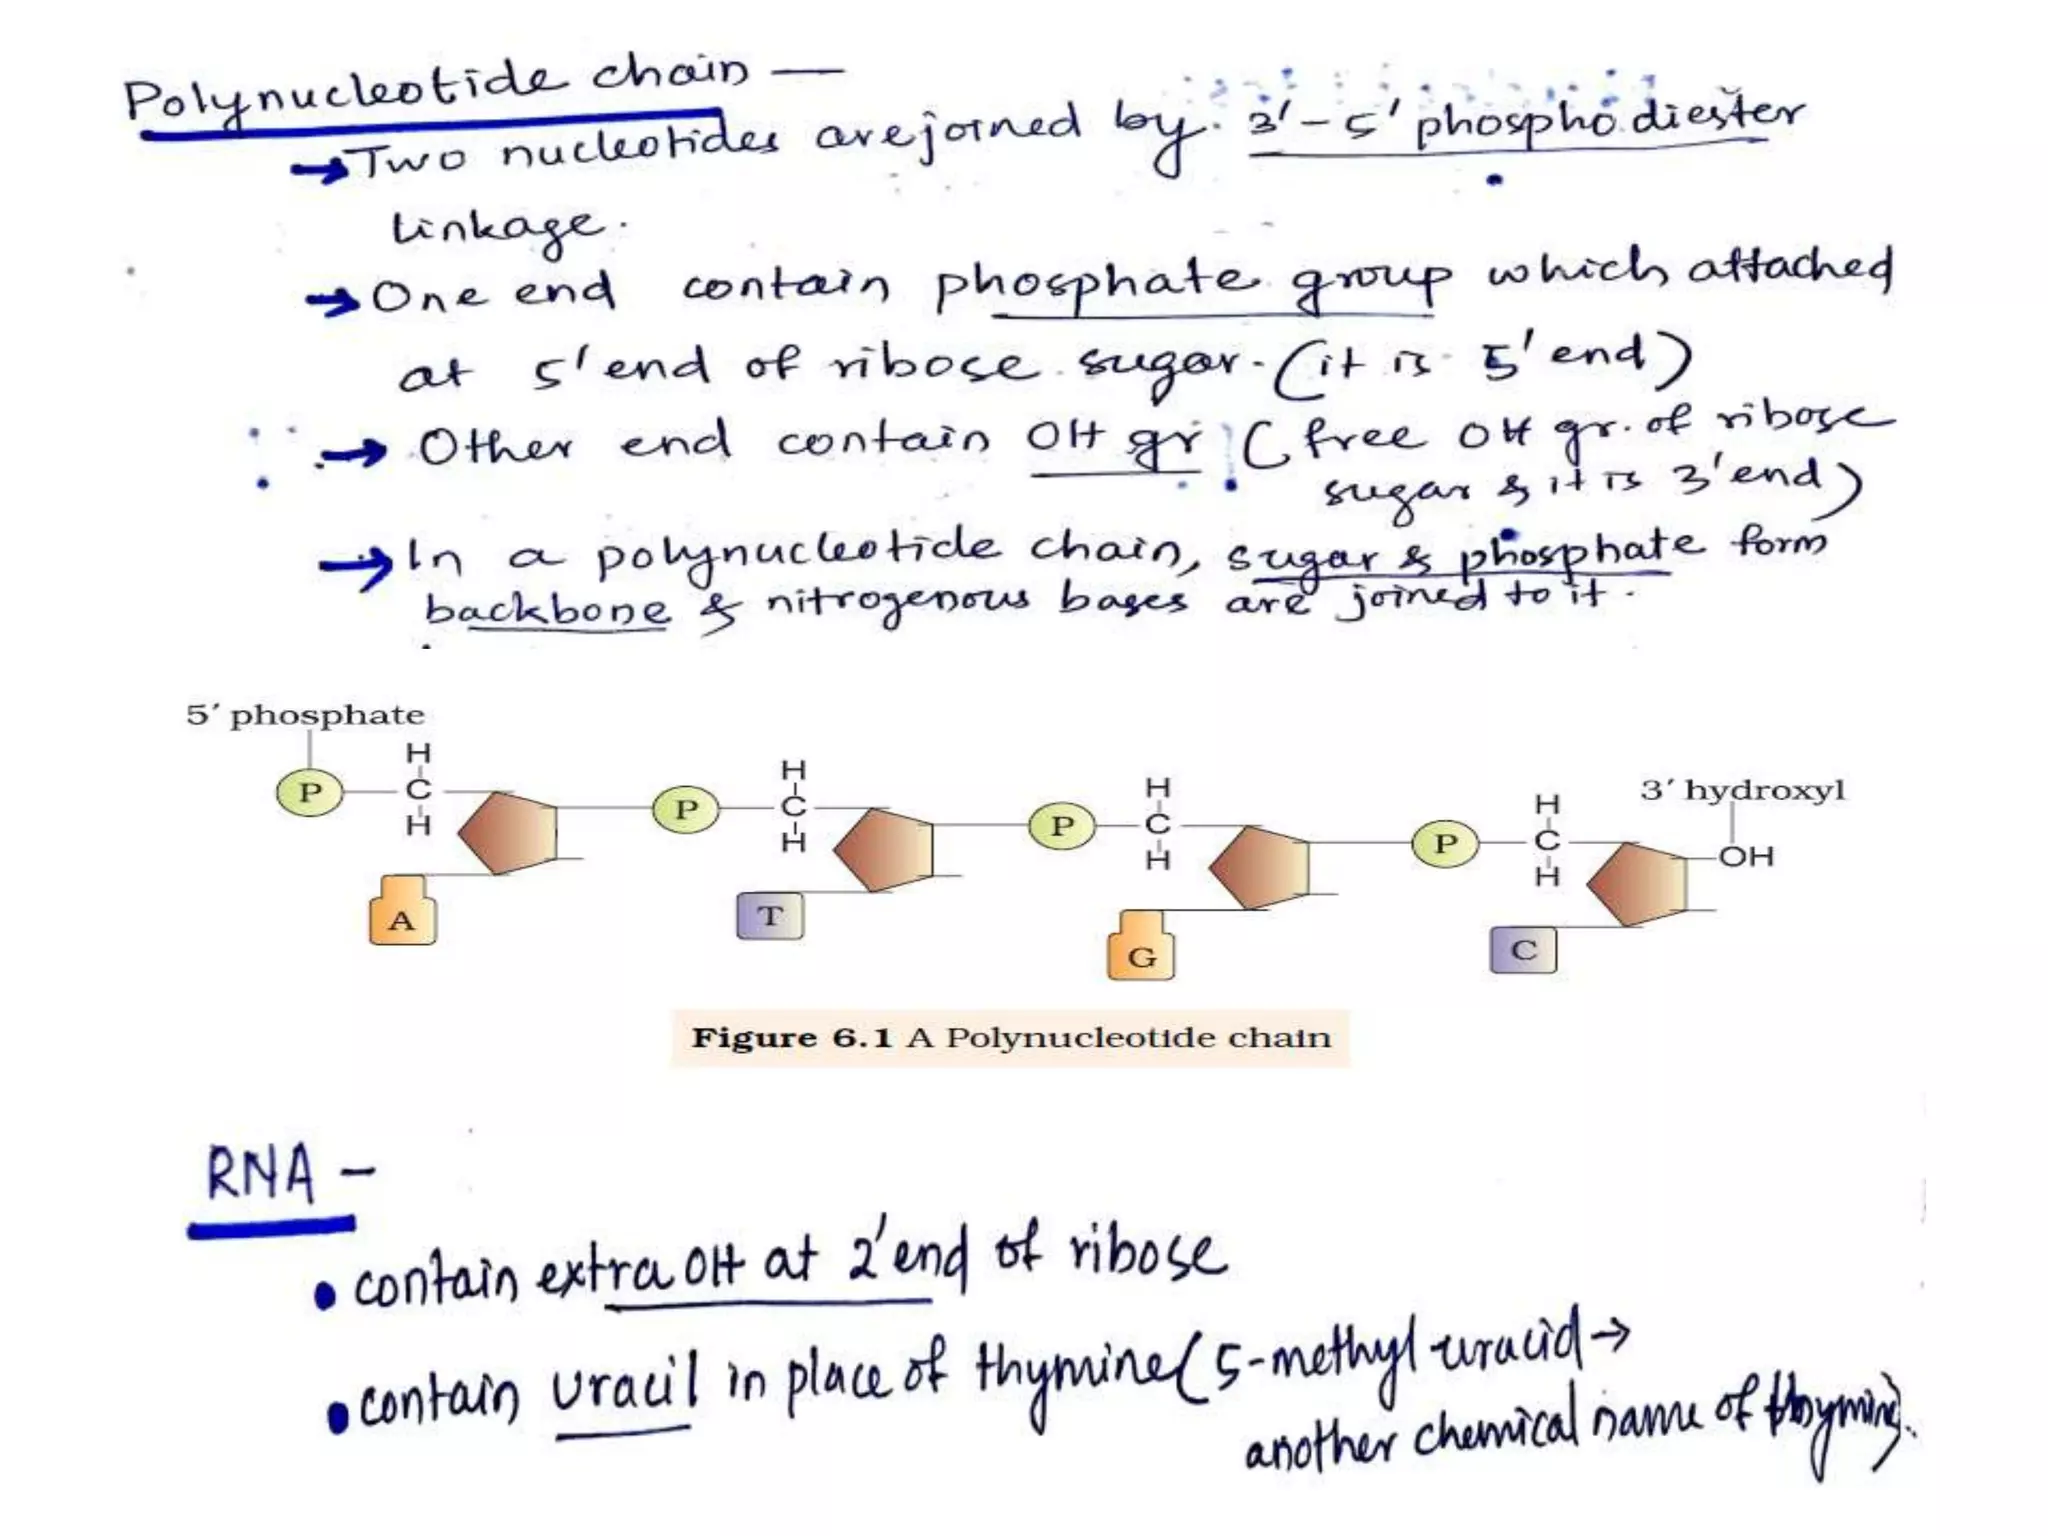 Polynucleotide chain —
→ Two nucleotides are joined by 3'-5' phosphodiester
linkage.
→ One end contain phosphate group which attached
at 5' end of ribose sugar. (it is 5' end)
→ Other end contain OH gr (free OH gr. of ribose
sugar & it is 3' end)
→ In a polynucleotide chain, sugar & phosphate form
backbone & nitrogenous bases are joined to it.
5′ phosphate
3′ hydroxyl
H H H H
P C P C P C P C OH
H H H H
A T G C
Figure 6.1 A Polynucleotide chain
RNA -
• contain extra OH at 2' end of ribose
• contain uracil in place of thymine (5-methyl uracid →
another chemical name of thymine).